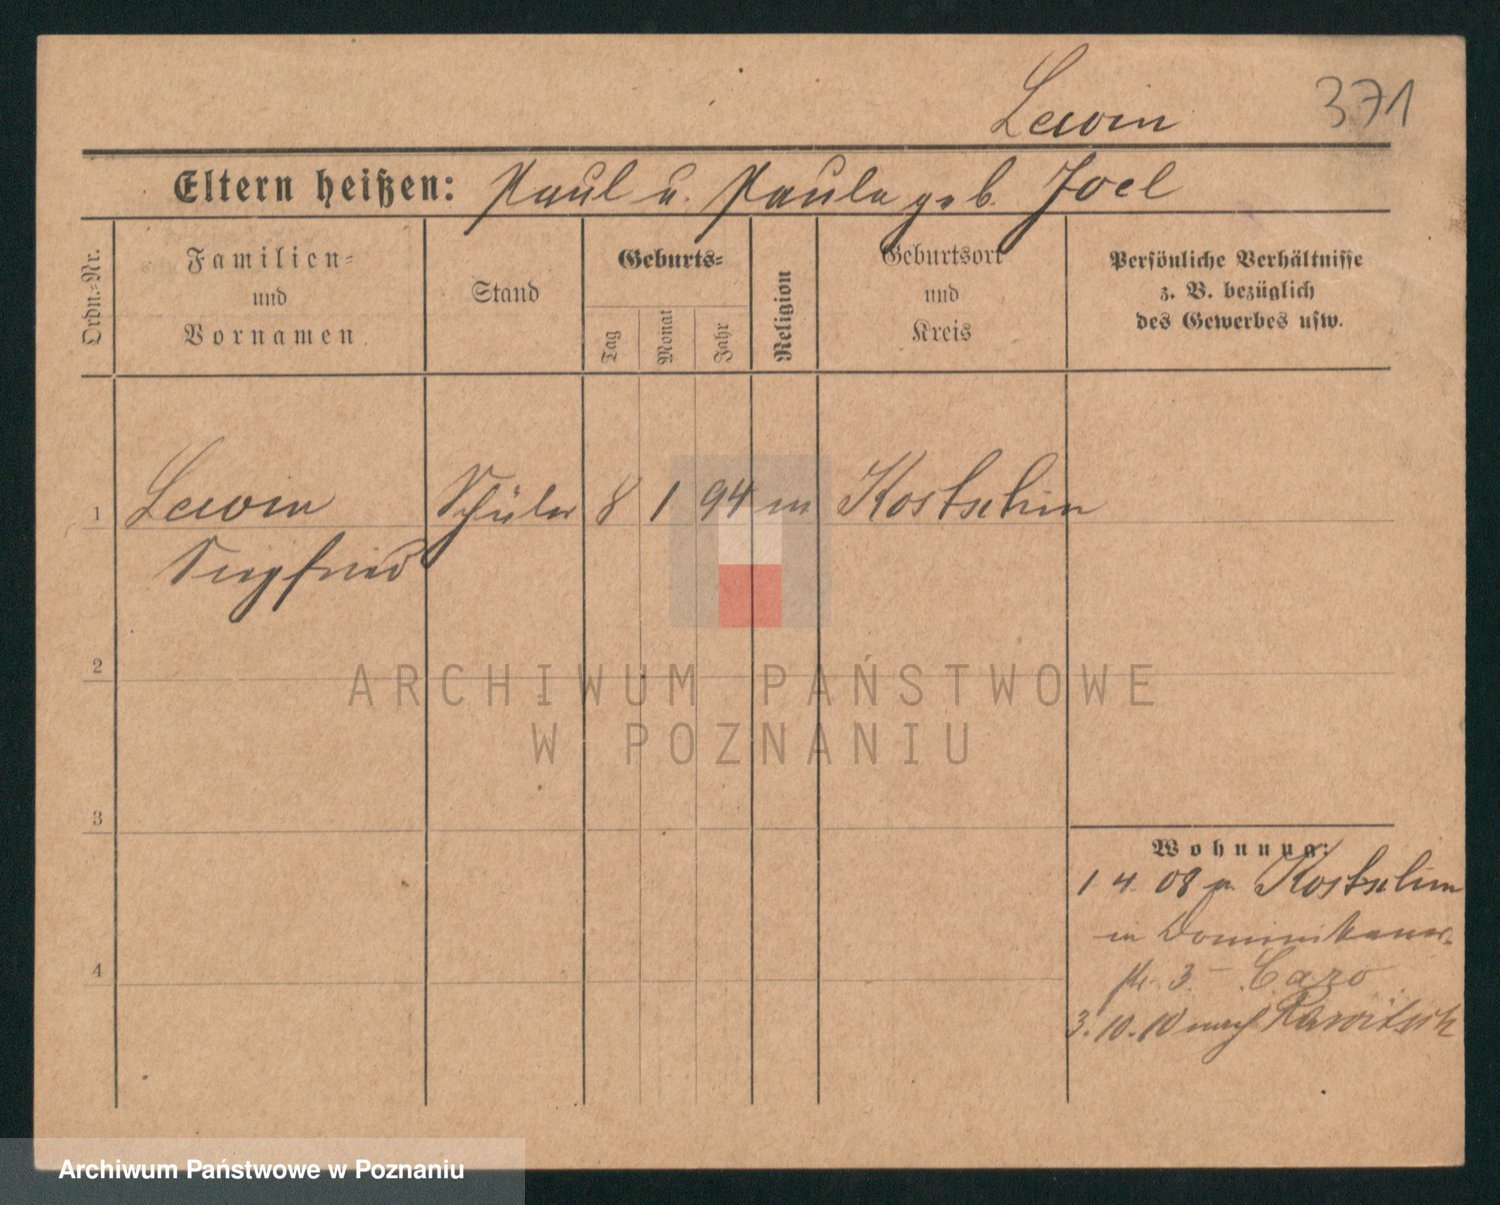 Lewin
371
Eltern heißen: Paul u. Paula geb. Joel
Ordn.-Nr.
Familien-
und
Vornamen
Stand
Geburts-
Tag
Monat
Jahr
Religion
Geburtsort
und
Kreis
Persönliche Verhältnisse
z. B. bezüglich
des Gewerbes usw.
1 Lewin Schüler 8 1 94 m Kostschin
Siegfried
2
3
4
Wohnung:
1 4. 08 v. Kostschin
in Dominikaner-
str. 3 - Caro
3. 10. 10 nach Rawitsch
ARCHIWUM PAŃSTWOWE
W POZNANIU
Archiwum Państwowe w Poznaniu